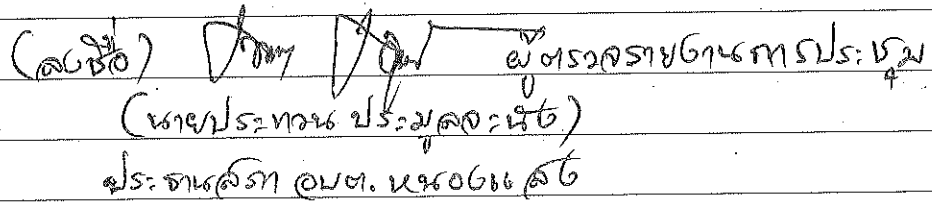 (ลงชื่อ) ผู้ตรวจรายงานการประชุม
(นายประทวน ประมูลจะนัง)
ประธานสภา อบต. หนองแสง